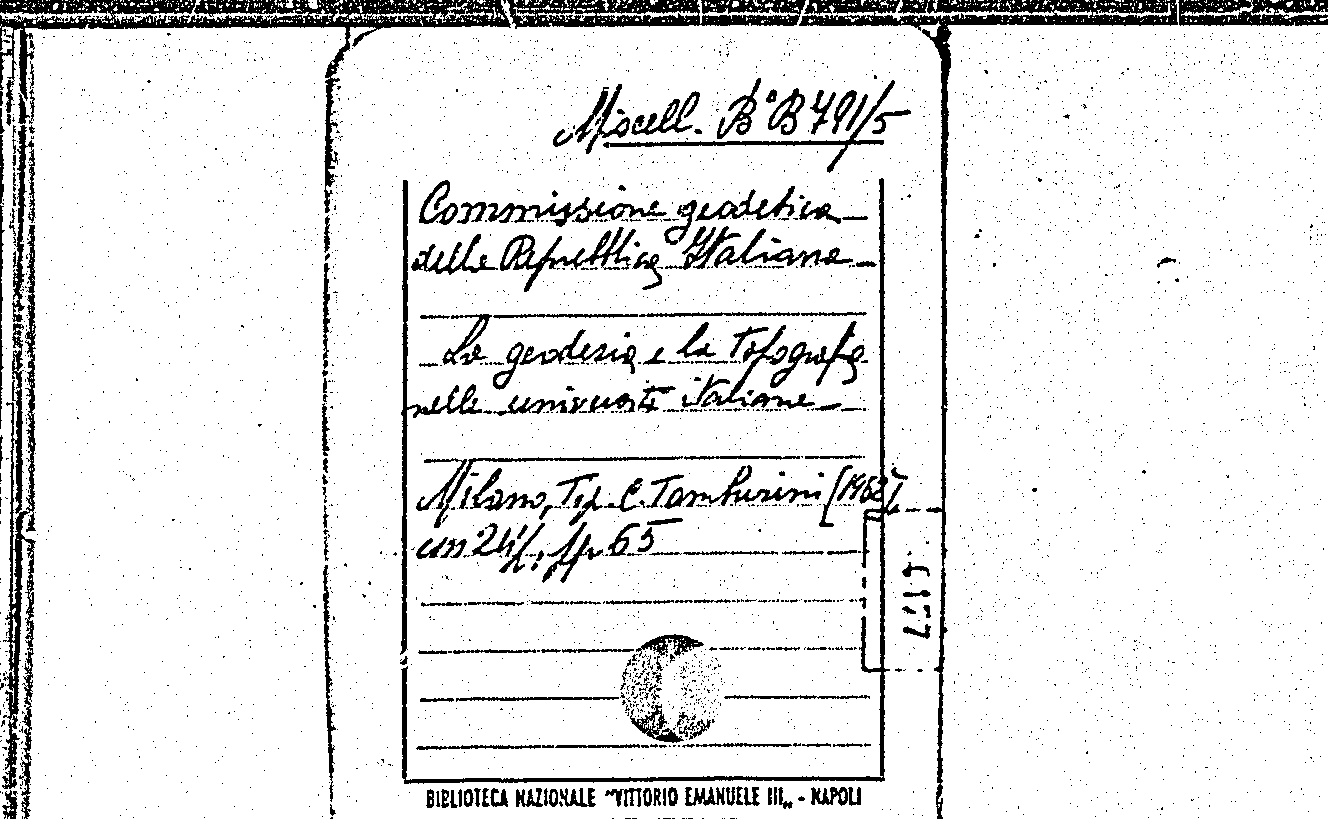 Miscell. Bª B 791/5
Commissione geodetica
della Repubblica Italiana
La geodesia e la topografia
nelle università italiane
Milano, Tip. C. Tamburini [1962]
cm 24½, pp. 65
BIBLIOTECA NAZIONALE "VITTORIO EMANUELE III„ - NAPOLI